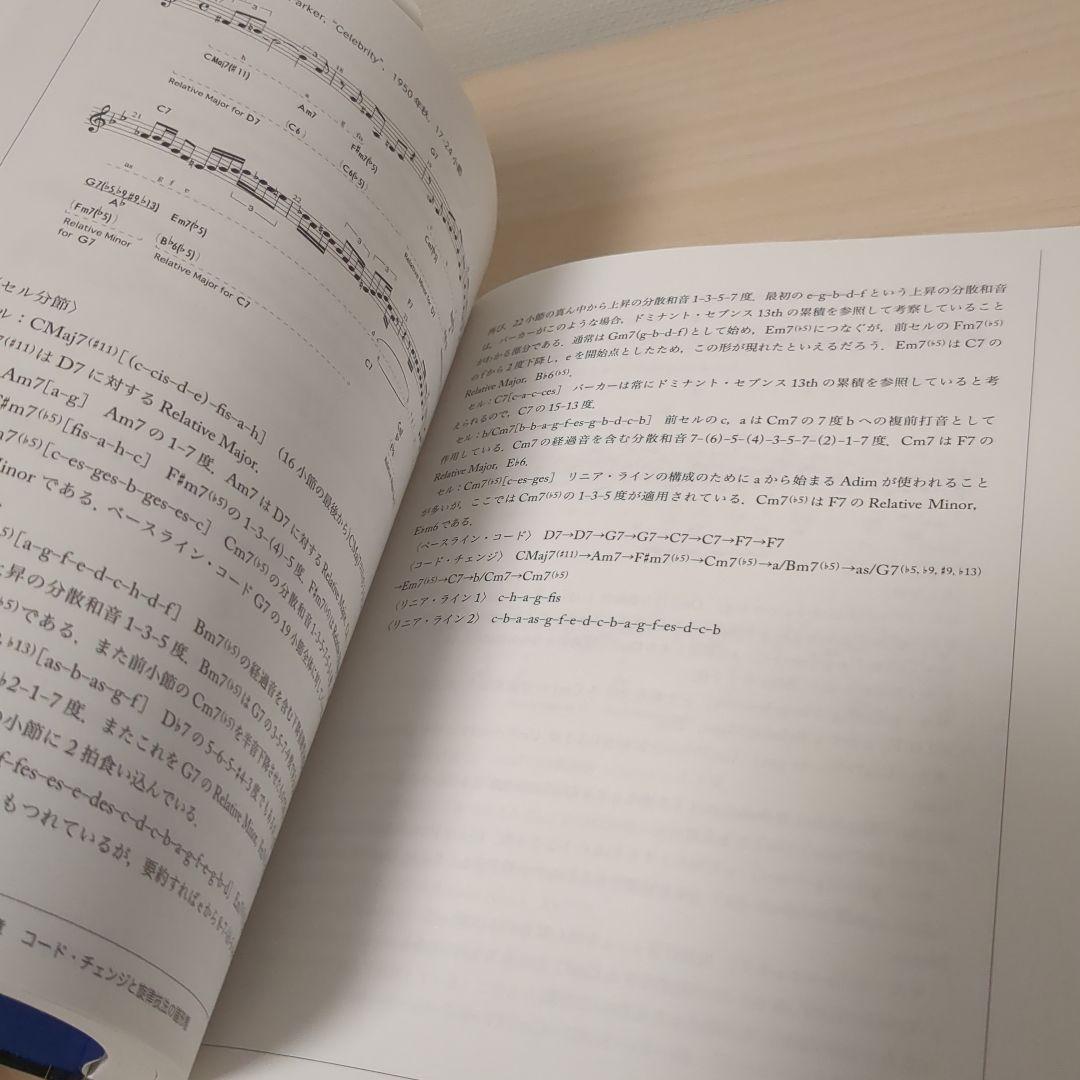 arker, "Celebrity", 1950年秋, 17-24小節
CMaj7(♯11)
Relative Major for D7
Am7
(C6)
F♯m7(♭5)
(C6(♭5))
G7
C7
G7(♭5,♭9,♯9,♭13)
A♭
(Fm7(♭5))
Relative Minor
for G7
Em7(♭5)
(B♭6(♭5))
Relative Major for C7
F7
〈セル分節〉
ル:CMaj7(♯11)[(c–cis–d–e)–fis–a–h]
(16小節の最後から)
7(♯11)は D7 に対する Relative Major,
Am7[a–g] Am7 の 1–7 度. Am7 は D7 に対する
F♯m7(♭5)[fis–a–h–c] F♯m7(♭5)の 1–3–(4)–5 度.
m7(♭5)[c–es–ges–b–ges–es–c] Cm7(♭5)の分散和音
Minor である. ベースライン・コード G7 の 19 小節
5)[a–g–f–e–d–c–h–d–f] Bm7(♭5)の経過音を含む
昇の分散和音 1–3–5 度. Bm7(♭5)は G7 の
♭5)である. また前小節の Cm7(♭5)を半音下降させた
♭13)[as–b–as–g–f] D♭7 の 5–6–5–♯4–3 度
♭2–1–7 度. またこれを G7 の Relative Minor,
小節に 2 拍食い込んでいる.
f–fes–es–e–des–c–d–c–b–a–g–f–e–g–b–d]
もつれているが, 要約すれば e から
コード・チェンジと旋律技法の
再び, 22 小節の真ん中から上昇の分散和音 1–3–5–7 度. 最初の e–g–b–d–f という上昇の分散和音
は, パーカーがこのような場合, ドミナント・セブンス 13th の累積を参照して考察していること
がわかる部分である. 通常は Gm7(g–b–d–f)として始め, Em7(♭5)につなぐが, 前セルの Fm7(♭5)
の f から 2 度下降し, e を開始点としたため, この形が現れたといえるだろう. Em7(♭5)は C7 の
Relative Major, B♭6(♭5).
セル:C7[c–a–c–ces] パーカーは常にドミナント・セブンス 13th の累積を参照していると考
えられるので, C7 の 15–13 度.
セル:b/Cm7[b–b–a–g–f–es–g–b–d–c–b] 前セルの c, a は Cm7 の 7 度 b への複前打音として
作用している. Cm7 の経過音を含む分散和音 7–(6)–5–(4)–3–5–7–(2)–1–7 度. Cm7 は F7 の
Relative Major, E♭6.
セル:Cm7(♭5)[c–es–ges] リニア・ラインの構成のために a から始まる Adim が使われること
が多いが, ここでは Cm7(♭5)の 1–3–5 度が適用されている. Cm7(♭5)は F7 の Relative Minor,
E♭m6 である.
〈ベースライン・コード〉 D7→D7→G7→G7→C7→C7→F7→F7
〈コード・チェンジ〉 CMaj7(♯11)→Am7→F♯m7(♭5)→Cm7(♭5)→a/Bm7(♭5)→as/G7(♭5, ♭9, ♯9, ♭13)
→Em7(♭5)→C7→b/Cm7→Cm7(♭5)
〈リニア・ライン 1〉 c–h–a–g–fis
〈リニア・ライン 2〉 c–b–a–as–g–f–e–d–c–b–a–g–f–es–d–c–b